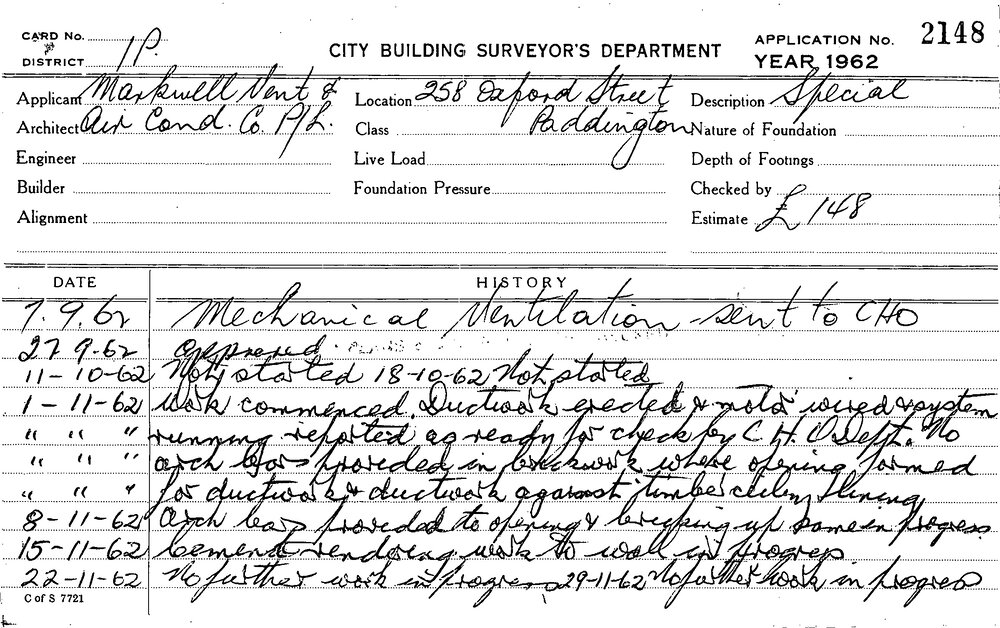 CARD No. 1P.
DISTRICT
CITY BUILDING SURVEYOR'S DEPARTMENT
APPLICATION No. 2148
YEAR 1962
Applicant Markwell Vent &
Location 258 Oxford Street
Description Special
Architect Air Cond. Co. P/L.
Class Paddington
Nature of Foundation
Engineer
Live Load
Depth of Footings
Builder
Foundation Pressure
Checked by
Alignment
Estimate £ 148
DATE HISTORY
7.9.62 Mechanical Ventilation - sent to CHO
27 9-62 approved
11-10-62 Not started 18-10-62 Not started
1-11-62 Work commenced. Ductwork erected & motor wired & system
" " " running reported as ready for check by C.H.O Dept. No
" " " arch bars provided in brickwork where opening formed
" " " for ductwork & ductwork against timber lining
8-11-62 Arch bars provided to opening & bricking up same in progress
15-11-62 Cement rendering work to wall in progress
22-11-62 No further work in progress 29-11-62 No further work in progress
C of S 7721